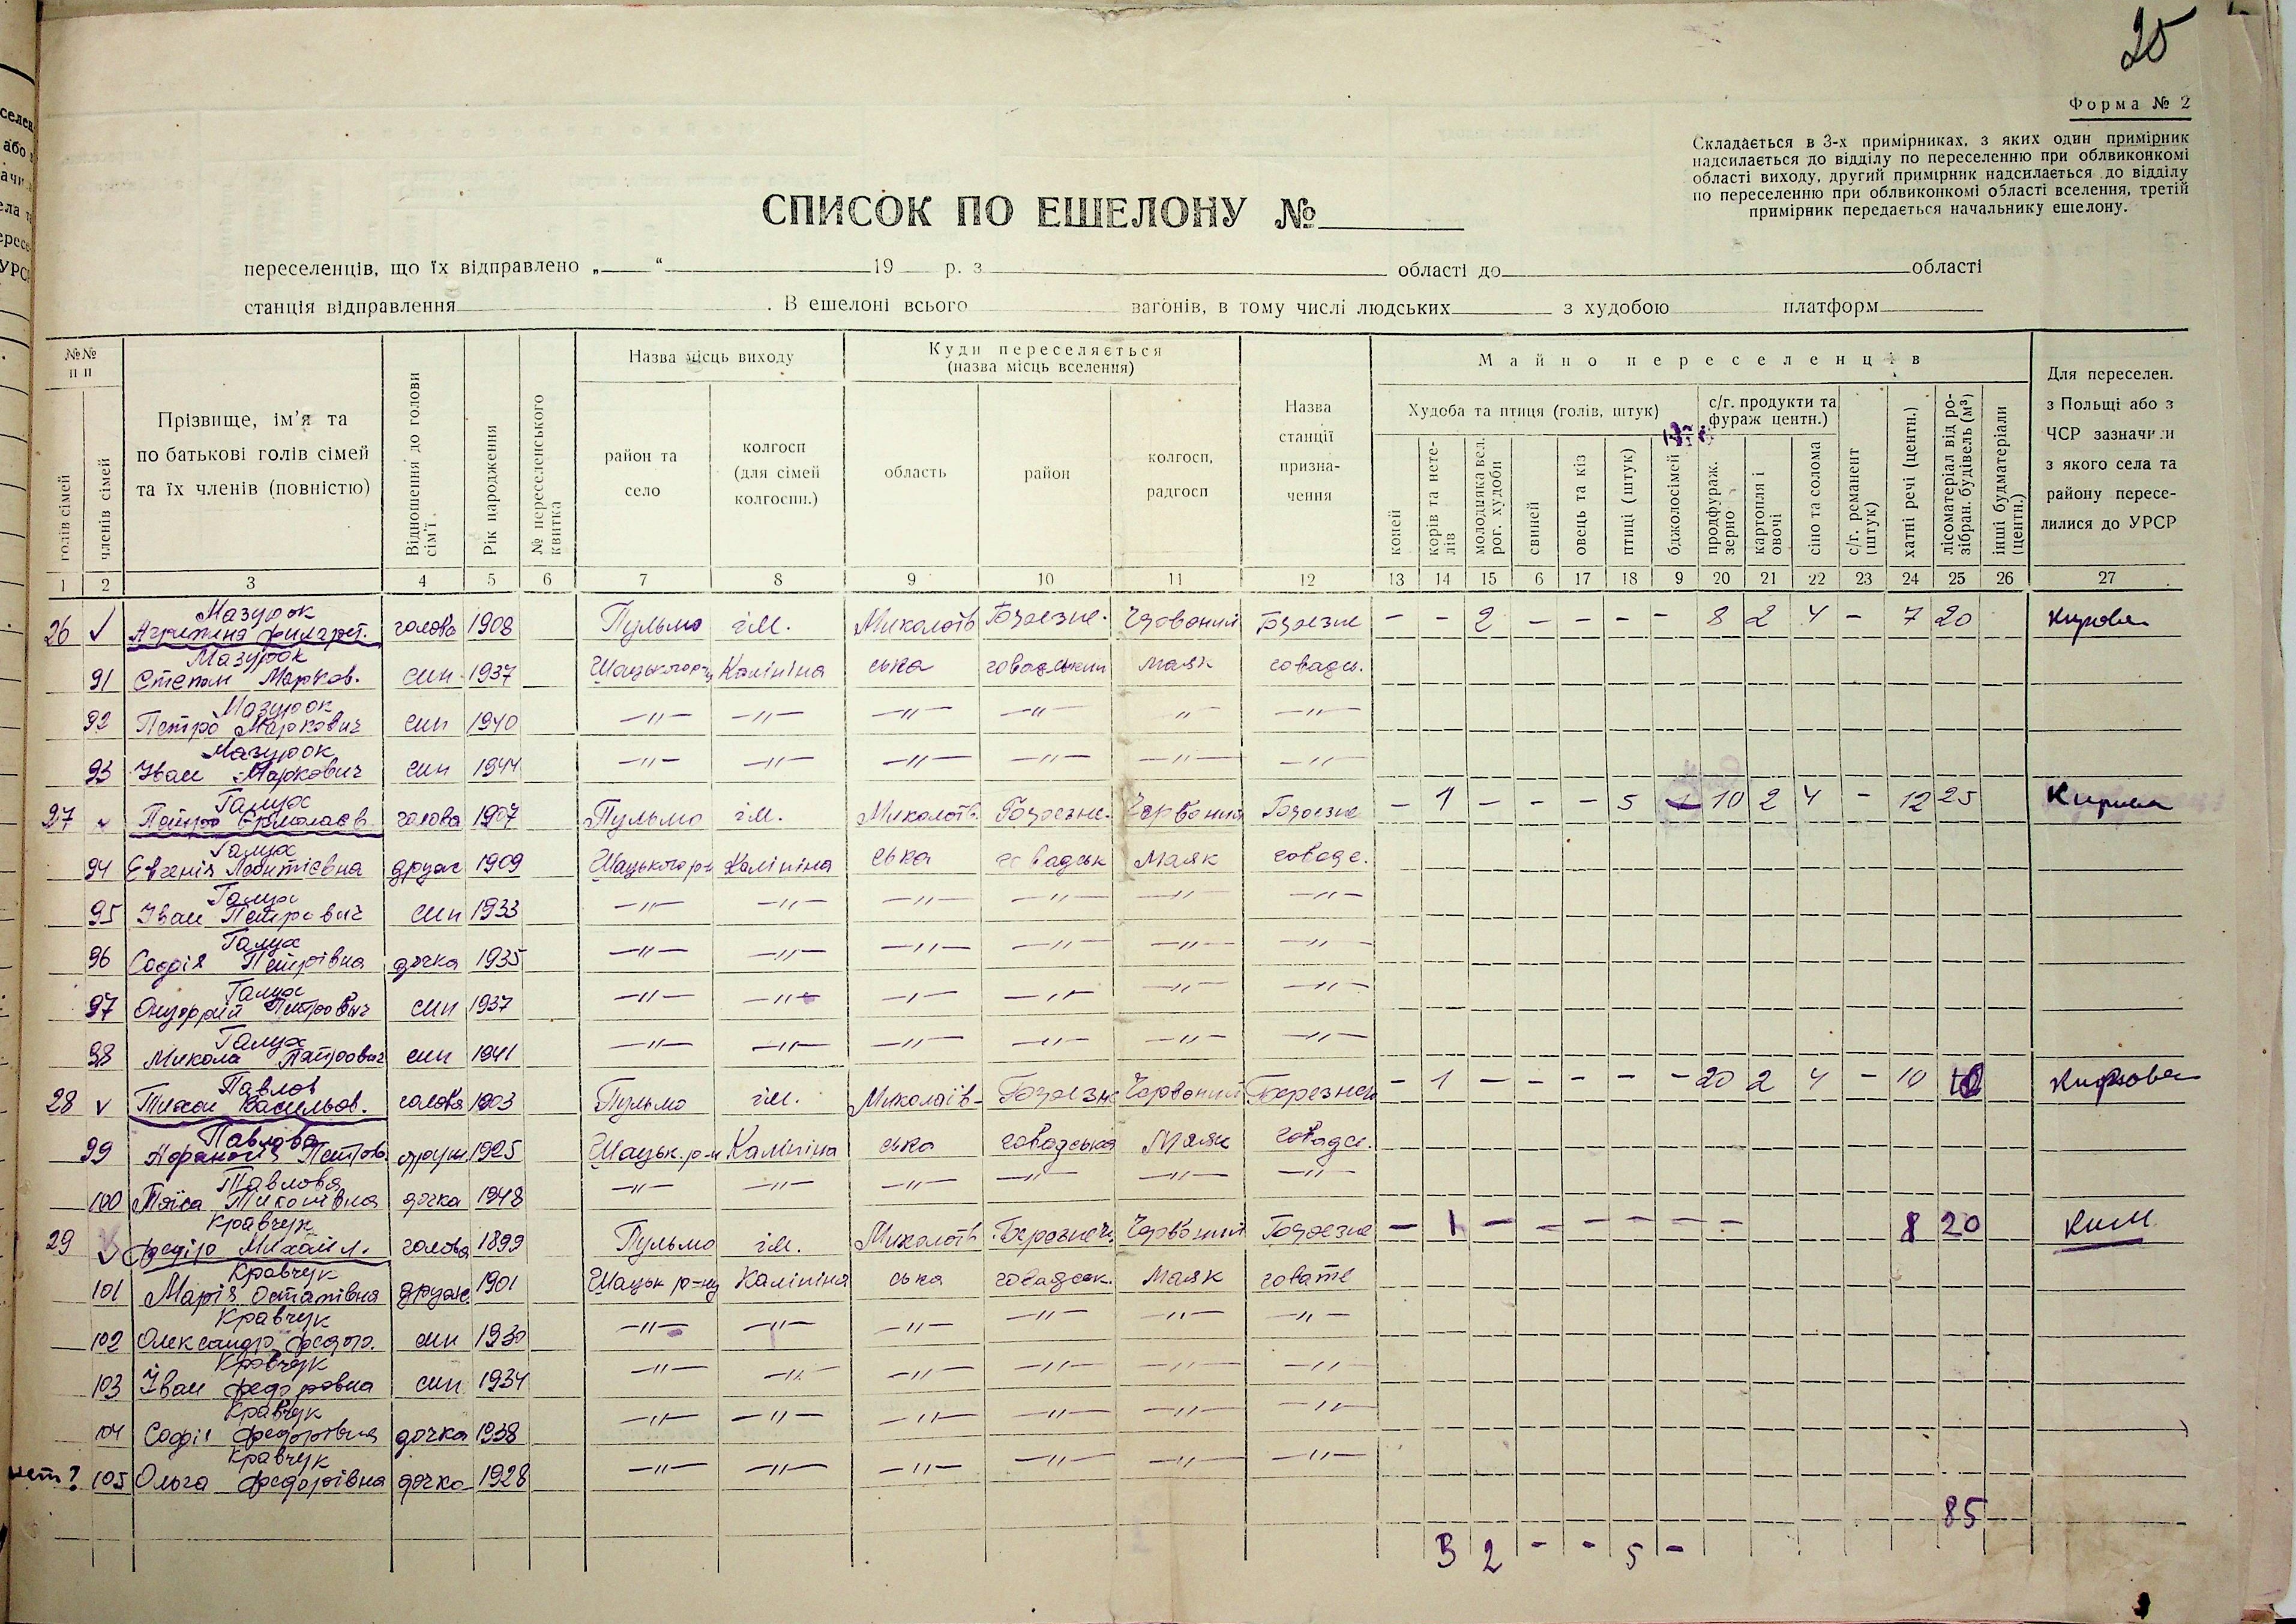 25
Форма № 2
Складається в 3-х примірниках, з яких один примірник
надсилається до відділу по переселенню при облвиконкомі
області виходу, другий примірник надсилається до відділу
по переселенню при облвиконкомі області вселення, третій
примірник передається начальнику ешелону.
СПИСОК ПО ЕШЕЛОНУ №
переселенців, що їх відправлено „ “ 19 р. з області до області
станція відправлення . В ешелоні всього вагонів, в тому числі людських з худобою платформ
№№ п п
голів сімей
членів сімей
Прізвище, ім’я та
по батькові голів сімей
та їх членів (повністю)
Відношення до голови сім’ї
Рік народження
№ переселенського квитка
Назва місць виходу
район та село
колгосп (для сімей колгоспн.)
Куди переселяється
(назва місць вселення)
область
район
колгосп, радгосп
Назва станції призна-чення
Майно переселенців
Худоба та птиця (голів, штук)
коней
корів та нете-лів
молодняка вел. рог. худоби
свиней
овець та кіз
птиці (штук)
бджолосімей
с/г. продукти та фураж центн.)
продфураж. зерно
картопля і овочі
сіно та солома
с/г. реманент (штук)
хатні речі (центн.)
лісоматеріал від ро-зібран. будівель (м³)
інші будматеріали (центн.)
Для переселен.
з Польщі або з
ЧСР зазначити
з якого села та
району пересе-
лилися до УРСР
1 2 3 4 5 6 7 8 9 10 11 12 13 14 15 6 17 18 9 20 21 22 23 24 25 26 27
Мазурок
26 √ Агрипина Филарет. голова 1908 Пульмо ім. Миколаїв Березне- Червоний Березне - - 2 - - - - 8 2 4 - 7 20
Мазурок
91 Степан Марков. син 1937 Шацького р-ну Калініна ська говадський маяк говадс.
Мазурок
92 Петро Маркович син 1940 -"- -"- -"- -"- " -"-
Мазурок
93 Іван Маркович син 1944 -"- -"- -"- -"- -"- -"-
Галух
27 Петро Ермолаєв голова 1907 Пульмо ім. Миколаїв. Березне- Червоний Березне - 1 - - - 5 10 2 4 - 12 25
Галух
94 Евгенія Леонтіевна друж 1909 Шацького р-н Калініна ська говадськ Маяк говадс.
Галух
95 Іван Петрович син 1933 -"- -"- -"- -"- -"- -"-
Галух
96 Софія Петрівна дочка 1935 -"- -"- -"- -"- -"- -"-
Галух
97 Онуфрій Петрович син 1937 -"- -"- -"- -"- -"- -"-
Галух
98 Микола Петрович син 1941 -"- -"- -"- -"- -"- -"-
Павлов
28 v Тихон Васильов. голова 1903 Пульмо ім. Миколаїв- Березне Червоний Березне - 1 - - - - - 20 2 4 - 10
Павлова
99 друж 1925 Шацьк. р-н Калініна ська говадська Маяк говадс.
Павлова
100 Таїса Тихонівна дочка 1948 -"- -"- -"- -"- -"- -"-
Кравчук
29 v Федір Михайл. голова 1899 Пульмо ім. Миколаїв Березне Червоний Березне - 1 - - - - - - 8 20
Кравчук
101 Марія Остапівна друж. 1901 Шацьк р-ну Калініна ська говадськ. Маяк говате
Кравчук
102 Олександр Федор. син 1930 -"- -"- -"- -"- -"- -"-
Кравчук
103 Іван Федоровна син 1934 -"- -"- -"- -"- -"- -"-
Кравчук
104 Софія Федорівна дочка 1938 -"- -"- -"- -"- -"- -"-
Кравчук
нет? 105 Ольга Федорівна дочка 1928 -"- -"- -"- -"- -"- -"-
85
3 2 - - 5 -